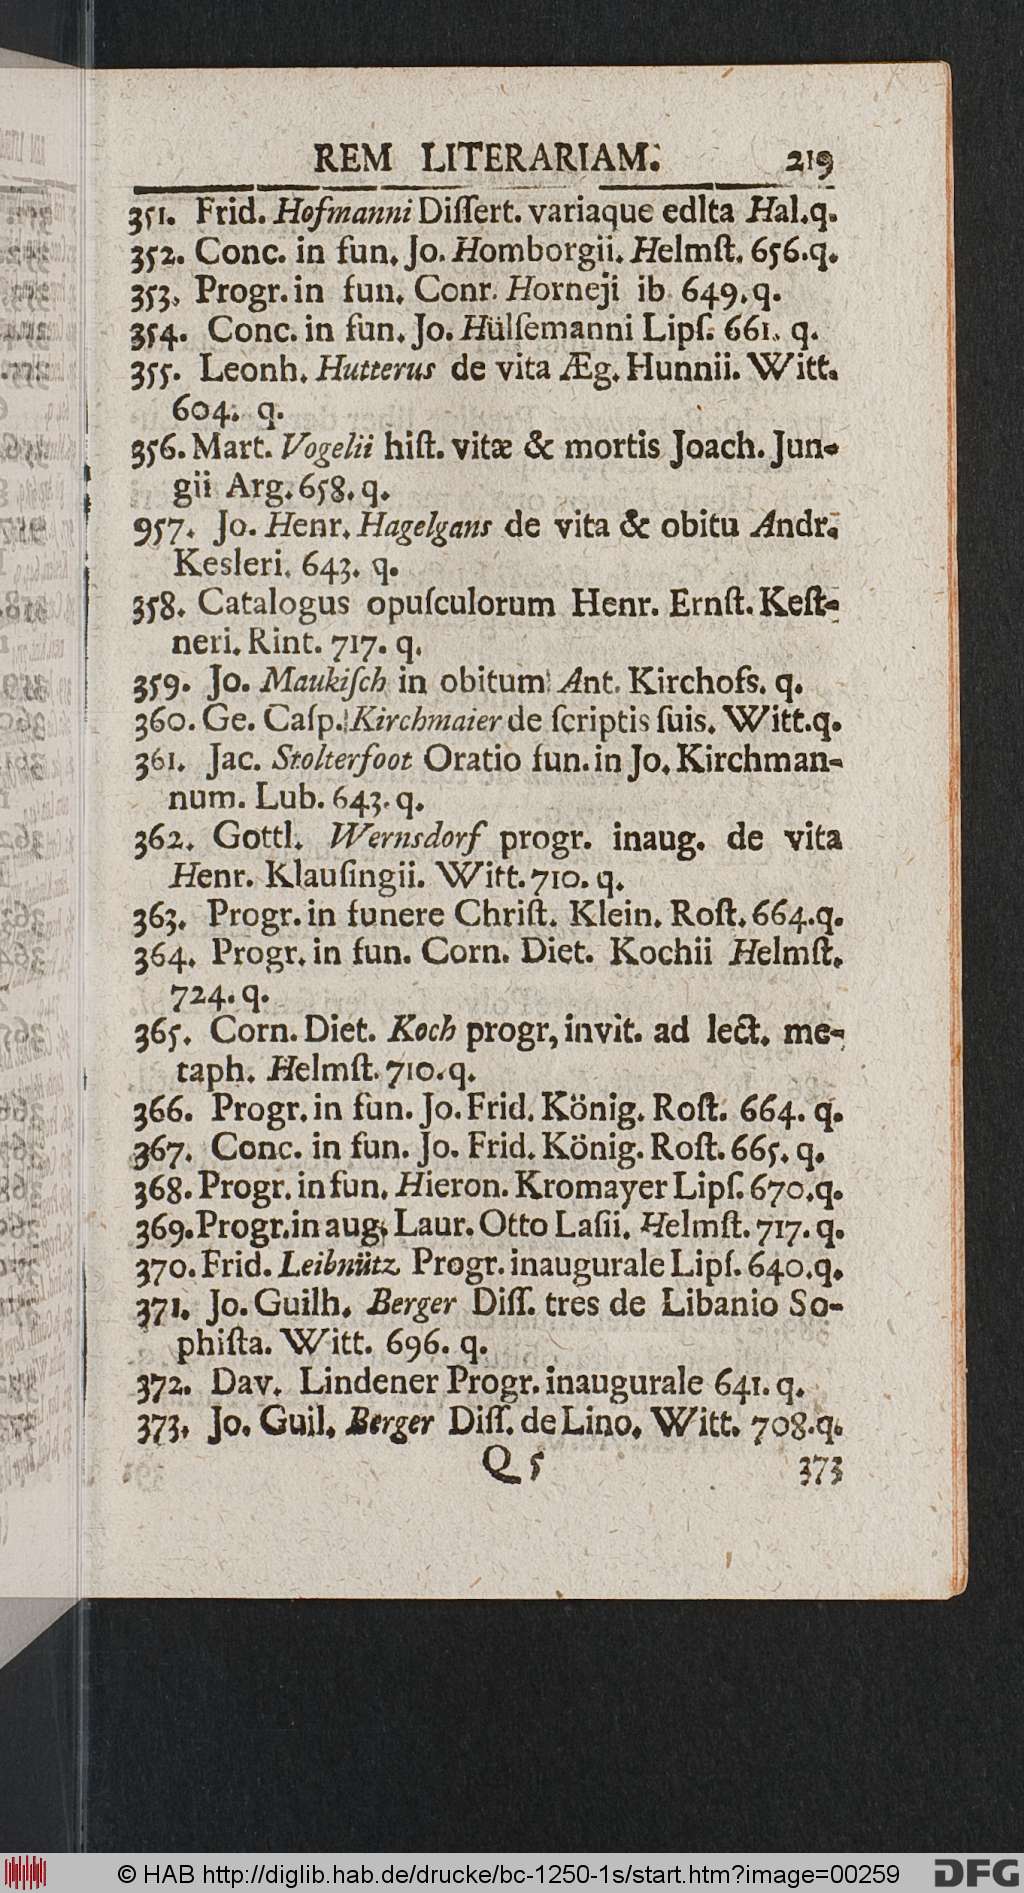 REM LITERARIAM. 219
351. Frid. Hofmanni Diſſert. variaque edlta Hal.q.
352. Conc. in fun. Jo. Homborgii. Helmſt. 656.q.
353. Progr. in fun. Conr. Horneji ib 649. q.
354. Conc. in fun. Jo. Hülſemanni Lipſ. 661. q.
355. Leonh. Hutterus de vita Æg. Hunnii. Witt.
604. q.
356. Mart. Vogelii hiſt. vitæ & mortis Joach. Jun-
gii Arg. 658. q.
957. Jo. Henr. Hagelgans de vita & obitu Andr.
Kesleri. 643. q.
358. Catalogus opuſculorum Henr. Ernſt. Keſt-
neri. Rint. 717. q.
359. Jo. Maukiſch in obitum Ant. Kirchofs. q.
360. Ge. Caſp. Kirchmaier de ſcriptis ſuis. Witt.q.
361. Jac. Stolterfoot Oratio fun. in Jo. Kirchman-
num. Lub. 643. q.
362. Gottl. Wernsdorf progr. inaug. de vita
Henr. Klauſingii. Witt. 710. q.
363. Progr. in funere Chriſt. Klein. Roſt. 664.q.
364. Progr. in fun. Corn. Diet. Kochii Helmſt.
724. q.
365. Corn. Diet. Koch progr, invit. ad lect. me-
taph. Helmſt. 710. q.
366. Progr. in fun. Jo. Frid. König. Roſt. 664. q.
367. Conc. in fun. Jo. Frid. König. Roſt. 665. q.
368. Progr. in fun. Hieron. Kromayer Lipſ. 670.q.
369. Progr. in aug. Laur. Otto Laſii. Helmſt. 717. q.
370. Frid. Leibnütz Progr. inaugurale Lipſ. 640.q.
371. Jo. Guilh. Berger Diſſ. tres de Libanio So-
phiſta. Witt. 696. q.
372. Dav. Lindener Progr. inaugurale 641. q.
373. Jo. Guil. Berger Diſſ. de Lino. Witt. 708.q.
Q 5 373
© HAB http://diglib.hab.de/drucke/bc-1250-1s/start.htm?image=00259
DFG